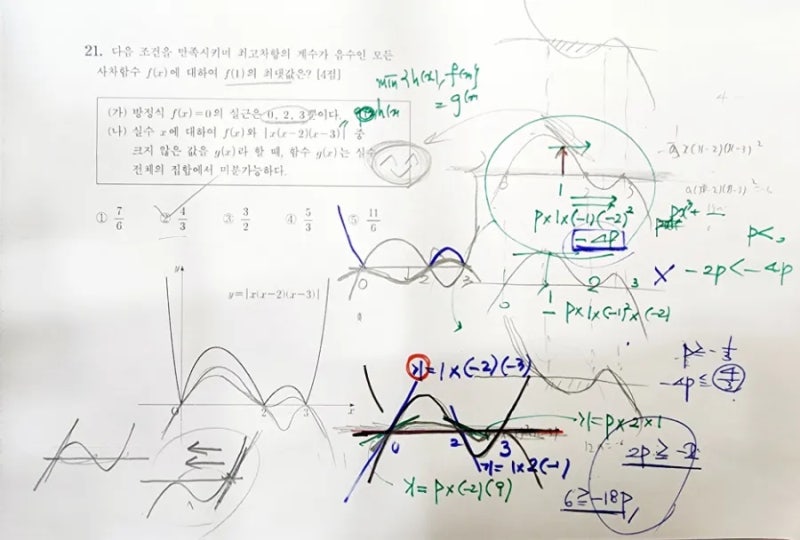 21. 다음 조건을 만족시키며 최고차항의 계수가 음수인 모든
사차함수 f(x)에 대하여 f(1)의 최댓값은? [4점]
min{h(x), f(x)}
= g(x
(가) 방정식 f(x)=0의 실근은 0, 2, 3뿐이다.
h(x
(나) 실수 x에 대하여 f(x)와 |x(x-2)(x-3)| 중
크지 않은 값을 g(x)라 할 때, 함수 g(x)는 실수
전체의 집합에서 미분가능하다.
① 7/6 ② 4/3 ③ 3/2 ④ 5/3 ⑤ 11/6
1
P×1×(-1)(-2)²
-4P
0 2 3
X -2P<-4P
2 3
0 1
-P×1×(-1)²×(-2)
y=|x(x-2)(x-3)|
O 2 3 x
y
P≥-1/3
-4P≤4/3
y'=1×(-2)(-3)
y'=P×2×1
0 2 3
y'=1×2(-1)
y'=P×(-2)(9)
2P≥-2
6≥-18P,